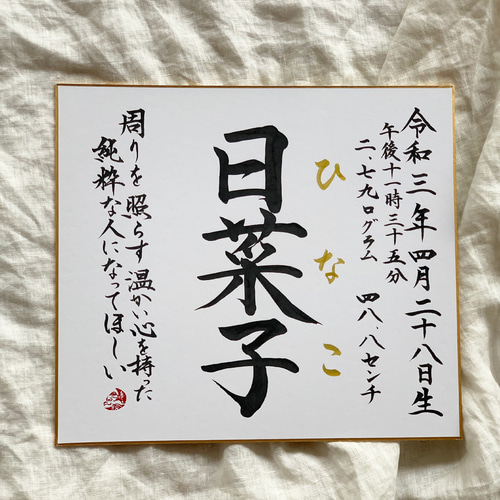 令和三年四月二十八日生
午後十一時三十五分
二、七九ログラム 四八、八センチ
ひなこ
日菜子
周りを照らす温かい心を持った
純粋な人になってほしい